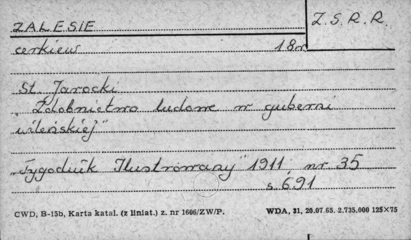 ZALESIE
Z.S.R.R.
cerkiew 18m
St. Jarocki
„Zdobnictwo ludowe w guberni
wileńskiej"
„Tygodnik Ilustrowany" 1911 nr 35
s. 691
CWD, B-15b, Karta katal. (z liniat.) z. nr 1606/ZW/P. WDA, 31, 20.07.65. 2.735.000 125×75